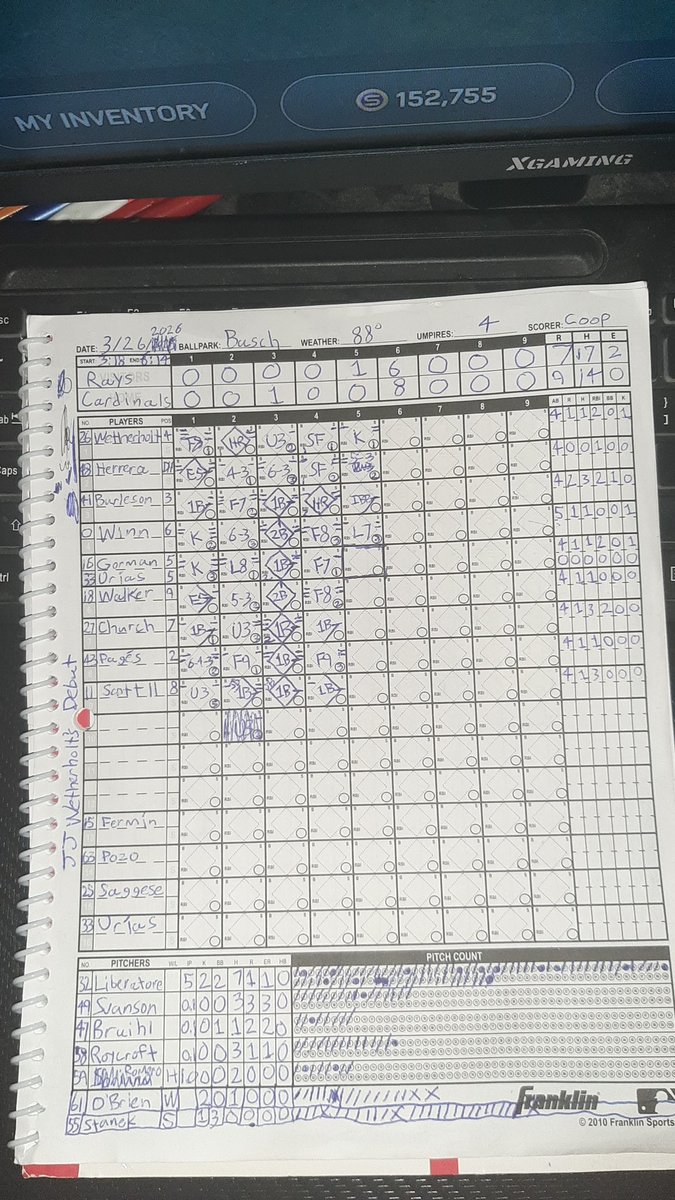 MY INVENTORY
S 152,755
XGAMING
DATE: 3/26/2026 BALLPARK: Busch WEATHER: 88° UMPIRES: 4 SCORER: Coop
START: 3:18 END: 6:14 1 2 3 4 5 6 7 8 9 R H E
Rays 0 0 0 0 1 6 0 0 0 7 17 2
Cardinals 0 0 1 0 0 8 0 0 0 9 14 0
NO. PLAYERS POS 1 2 3 4 5 6 7 8 9 AB R H RBI BB K
26 Wetherholt 4 HR U3 SF K 4 1 1 2 0 1
Herrera DH 4-3 6-3 SF 4 0 0 1 0 0
41 Burleson 3 1B F7 1B HR 4 2 3 2 1 0
0 Winn 6 K 6-3 2B F8 L7 5 1 1 0 0 1
16 Gorman 5 K L8 1B F7 4 1 1 2 0 1
33 Urías 5 0 0 0 0 0 0
18 Walker 9 5-3 2B F8 4 1 1 0 0 0
27 Church 7 1B U3 1B 1B 4 1 3 2 0 0
43 Pagés 2 6-1-3 F9 1B F9 4 1 1 0 0 0
11 Scott II 8 U3 1B 1B 1B 4 1 3 0 0 0
JJ Wetherholt's Debut
Fermín
Pozo
25 Saggese
33 Urías
NO. PITCHERS W/L IP K BB H R ER HB PITCH COUNT
32 Liberatore 5 2 2 7 1 1 0
Svanson 0.1 0 0 3 3 3 0
47 Bruihl 0.1 0 1 1 2 2 0
Roycroft 0 0 3 1 1 0
59 Romero H 0 0 2 0 0 0
61 O'Brien W 2 0 1 0 0 0
55 Stanek S 1 3 0 0 0 0
Franklin
© 2010 Franklin Sports